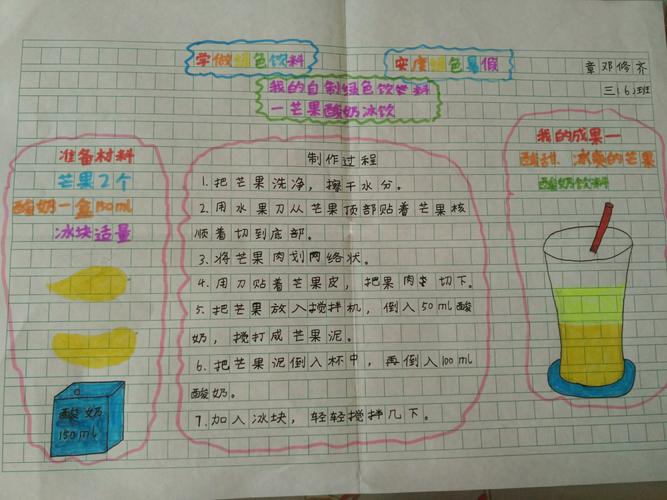 学做绿色饮料
安度绿色暑假
章邓修齐
三（6）班
我的自制绿色饮料
—芒果酸奶冰饮
准备材料
芒果2个
酸奶一盒150ml
冰块适量
酸奶
150ml
制作过程
1.把芒果洗净，擦干水分。
2.用水果刀从芒果顶部贴着芒果核
顺着切到底部。
3.将芒果肉划网络状。
4.用刀贴着芒果皮，把果肉切下。
5.把芒果放入搅拌机，倒入50ml酸
奶，搅打成芒果泥。
6.把芒果泥倒入杯中，再倒入100ml
酸奶。
7.加入冰块，轻轻搅拌几下。
我的成果—
酸甜、冰爽的芒果
酸奶饮料